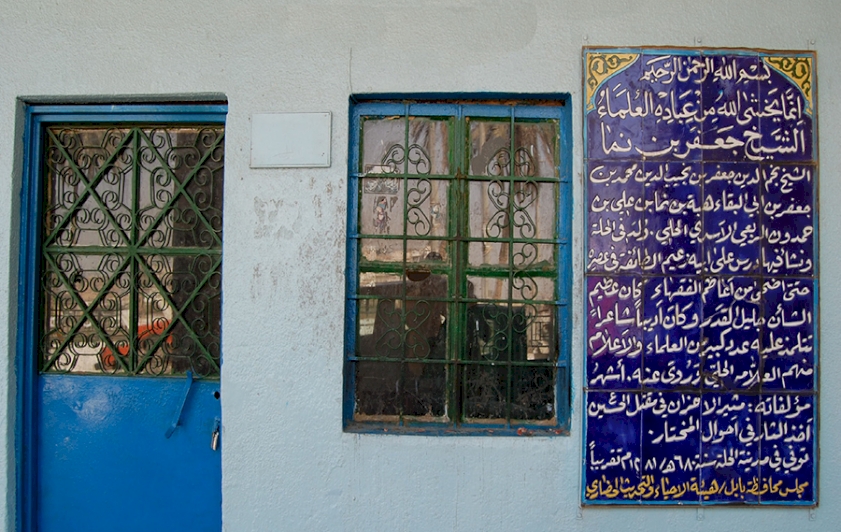 بسم الله الرحمن الرحيم
إنما يخشى الله من عباده العلماء
الشيخ جعفر بن نما
الشيخ نجم الدين جعفر بن نجيب الدين محمد بن
جعفر بن أبي البقاء هبة بن نما بن علي بن
حمدون الربعي الأسدي الحلي. ولد في الحلة
ونشأ فيها. درس على أبيه زعيم الطائفة في عصره
حتى أضحى من أعاظم الفقهاء كان عظيم
الشأن جليل القدر وكان أديباً شاعراً
تتلمذ عليه عدد كبير من العلماء والأعلام
منهم العلامة الحلي وروى عنه. أشهر
مؤلفاته: مثير الأحزان في مقتل الحسين
أخذ الثار في أحوال المختار.
توفي في مدينة الحلة سنة ٦٨٠هـ/١٢٨١م تقريباً
مجلس محافظة بابل/هيئة الإحياء والتحديث الحضاري